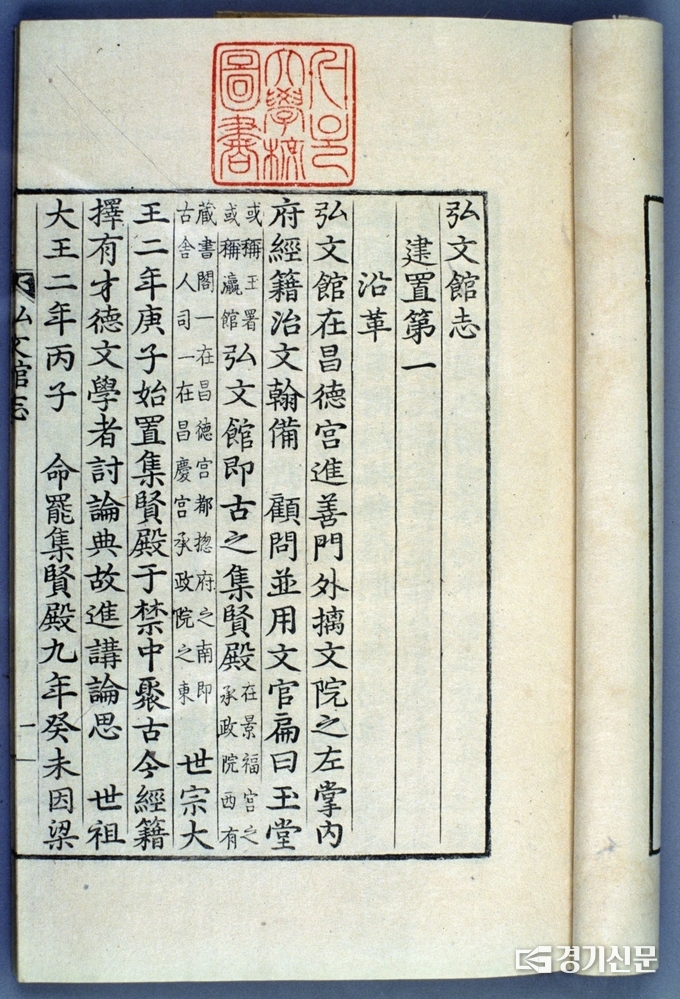 서울
大學校
圖書
弘文館志
建置第一
沿革
弘文館在昌德宮進善門外摛文院之左掌內
府經籍治文翰備 顧問並用文官扁曰玉堂
或稱王署或稱瀛館 弘文館即古之集賢殿 在景福宮之承政院西有
藏書閣一在昌德宮都摠府之南即古舍人司一在昌慶宮承政院之東 世宗大
王二年庚子始置集賢殿于禁中聚古今經籍
擇有才德文學者討論典故進講論思 世祖
大王二年丙子 命罷集賢殿九年癸未因梁
弘文館志 一
경기신문